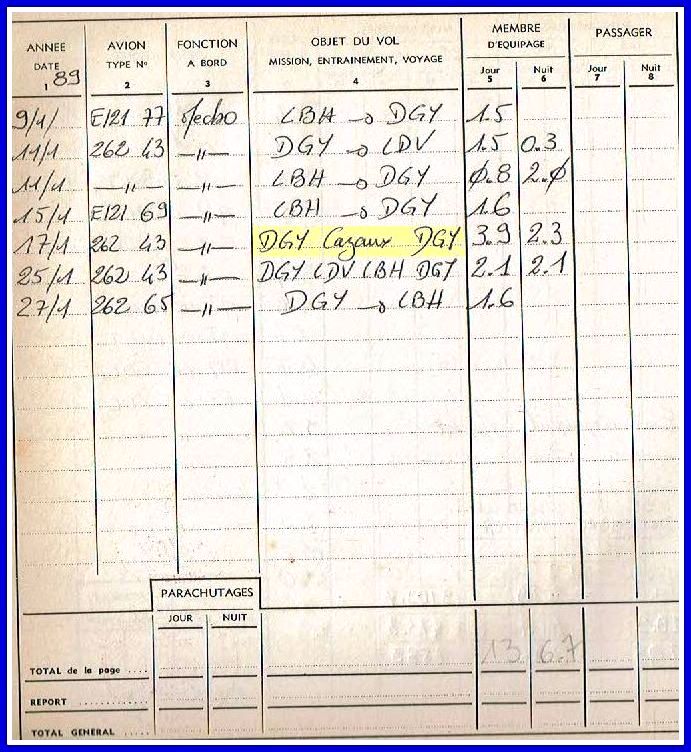 ANNEE AVION FONCTION OBJET DU VOL MEMBRE D'EQUIPAGE PASSAGER
DATE TYPE N° A BORD MISSION, ENTRAINEMENT, VOYAGE Jour Nuit Jour Nuit
1 89 2 3 4 5 6 7 8
9/1/ E121 77 Mecbo LBH → DGY 1.5
11/1 262 43 —〃— DGY → LDV 1.5 0.3
11/1 —〃— —〃— LBH → DGY Ø.8 2.Ø
15/1 E121 69 —〃— LBH → DGY 1.6
17/1 262 43 —〃— DGY Cazaux DGY 3.9 2.3
25/1 262 43 —〃— DGY LDV LBH DGY 2.1 2.1
27/1 262 65 —〃— DGY → LBH 1.6
PARACHUTAGES
JOUR NUIT
TOTAL de la page .... 13 6.7
REPORT ............
TOTAL GENERAL ......